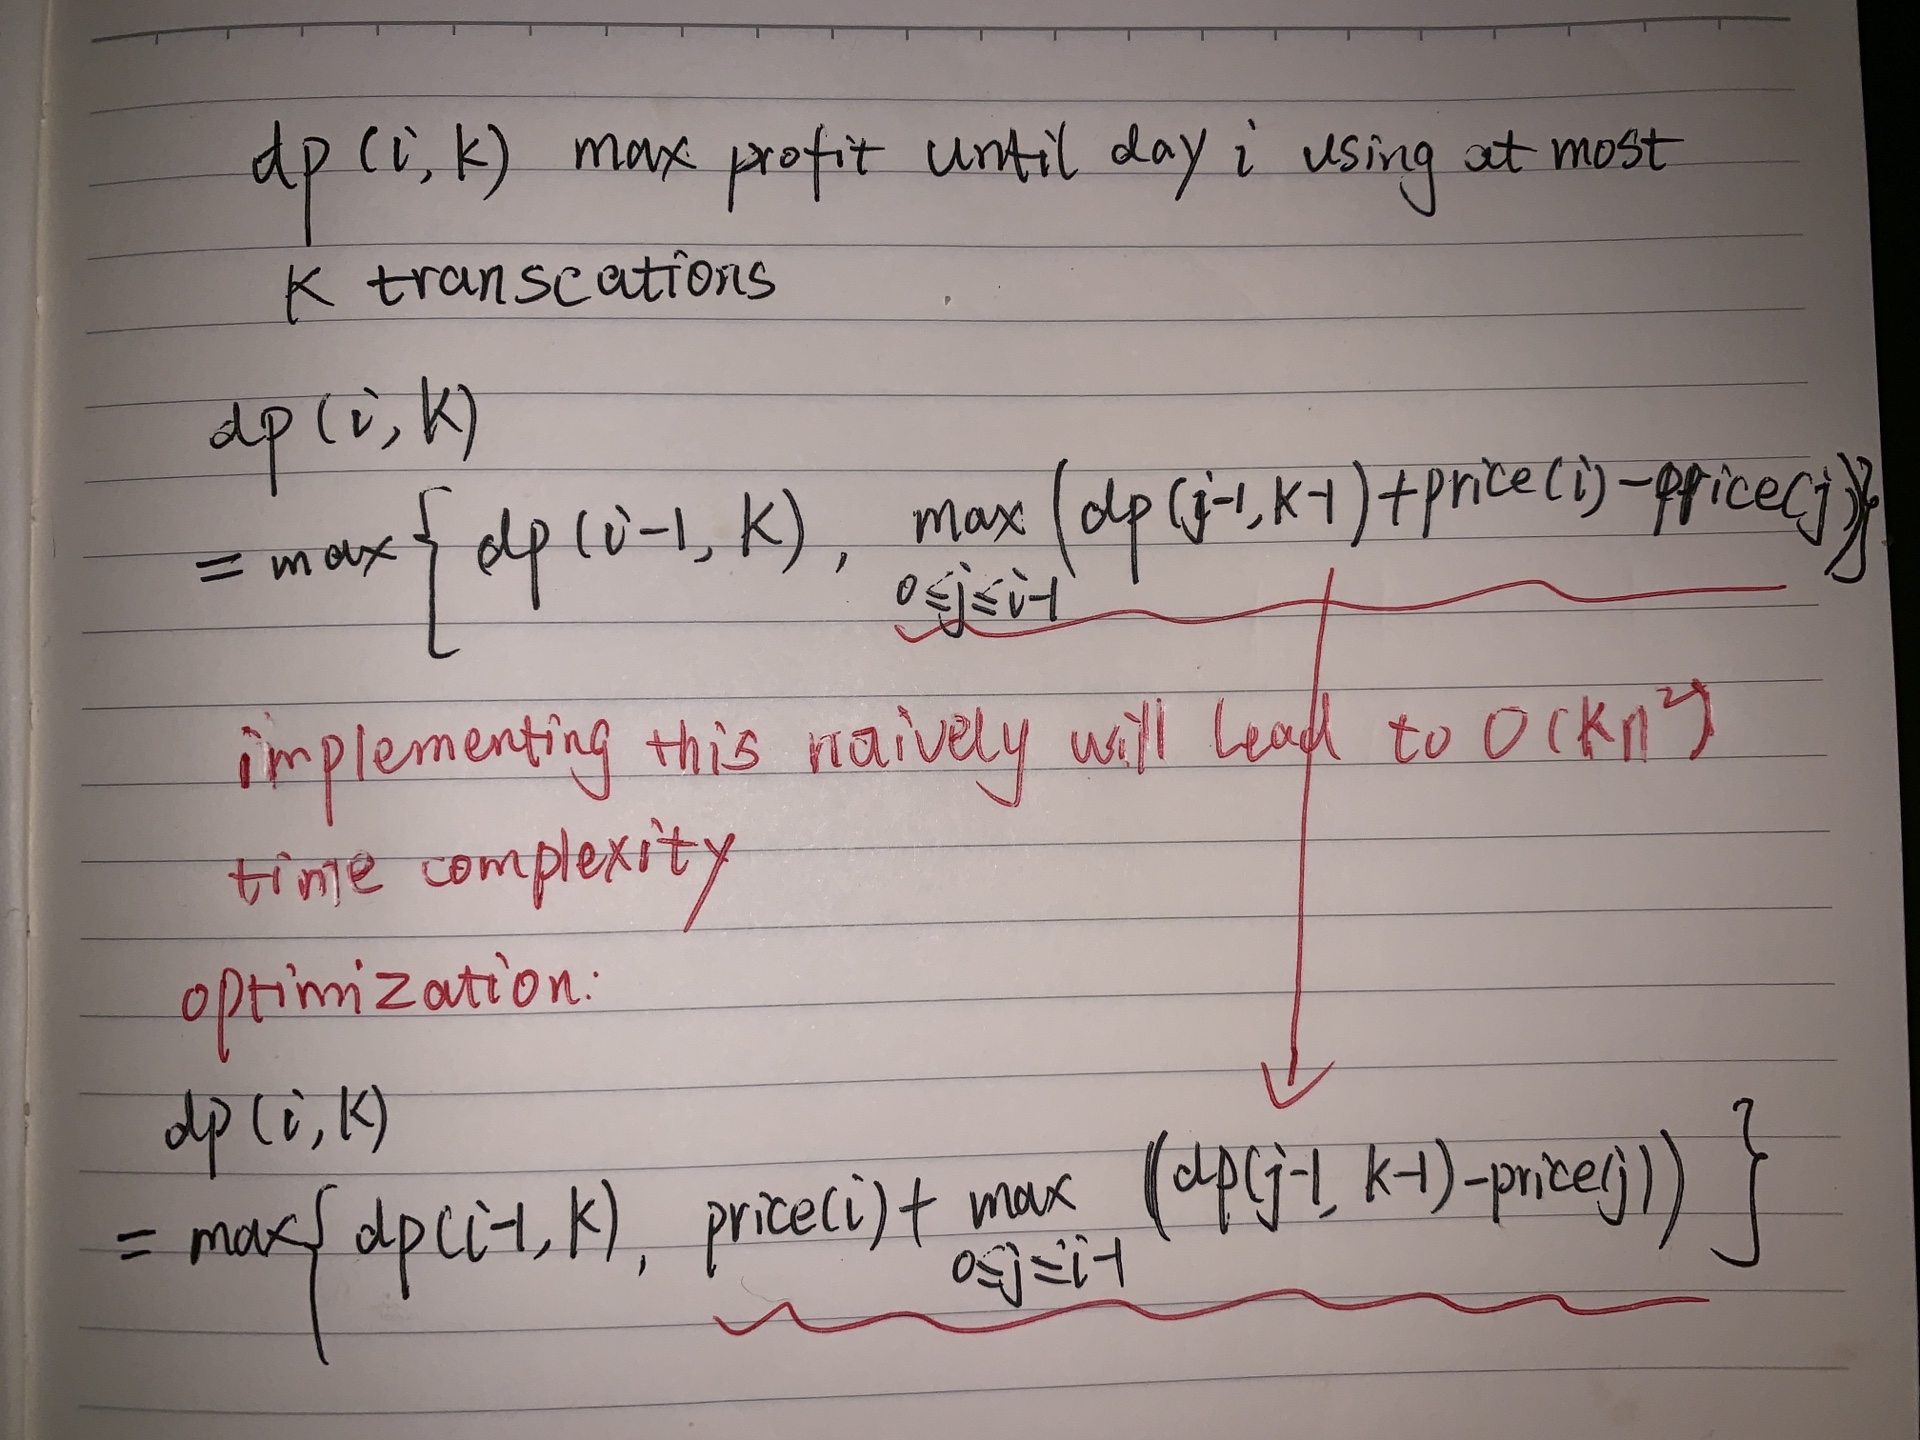 dp (i, k) max profit until day i using at most
k transcations
dp (i, k)
= max { dp (i-1, k), max (dp (j-1, k-1) + price(i) - price(j)) }
0≤j≤i-1
implementing this naively will lead to O(kn²)
time complexity
optimization:
dp (i, k)
= max { dp(i-1, k), price(i) + max (dp(j-1, k-1) - price(j)) }
0≤j≤i-1